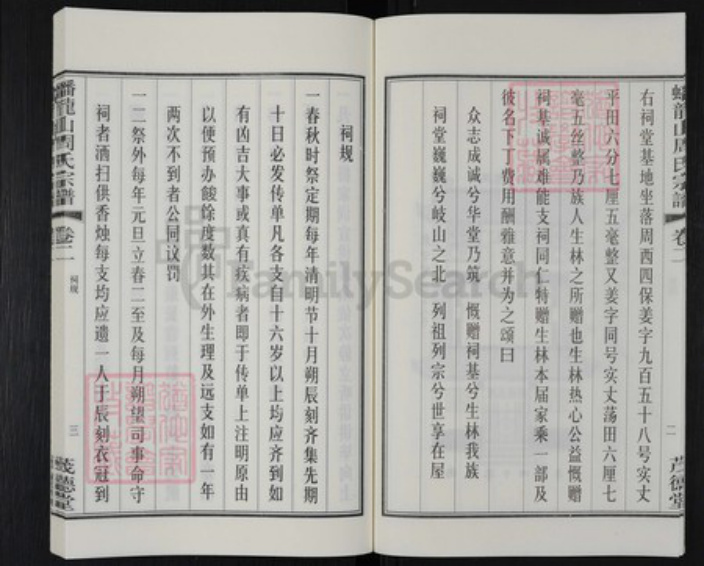 右祠堂基地坐落周西四保姜字九百五十八号实丈
平田六分七厘五毫整又姜字同号实丈荡田六厘七
毫五丝整乃族人生林之所赠也生林热心公益慨赠
祠基诚属难能支祠同仁特赠生林本届家乘一部及
彼名下丁费用酬雅意并为之颂曰
众志成诚兮华堂乃筑 慨赠祠基兮生林我族
祠堂巍巍兮岐山之北 列祖列宗兮世享在屋
蟠龍山周氏宗譜 卷二
二
茂德堂
祠规
一春秋时祭定期每年清明节十月朔辰刻齐集先期
十日必发传单凡各支自十六岁以上均应齐到如
有凶吉大事或真有疾病者即于传单上注明原由
以便预办馂馀度数其在外生理及远支如有一年
两次不到者公同议罚
一二祭外每年元旦立春二至及每月朔望司事命守
祠者洒扫供香烛每支均应遗一人于辰刻衣冠到
蟠龍山周氏宗譜 卷二
祠规
三
茂德堂
FamilySearch